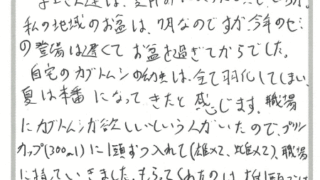 私の地域のお盆は、7月なのですが、今年のセミ
の登場は遅くてお盆を過ぎてからでした。
自宅のカブトムシの幼虫は、全て羽化してしまい、
夏は本番になってきたと感じます。職場
にカブトムシが欲しいという人がいたので、プリン
カップ(300ml)に1頭ずつ入れて(雄メて、雌メて)、職場
に持っていきました。もらってくれたのは